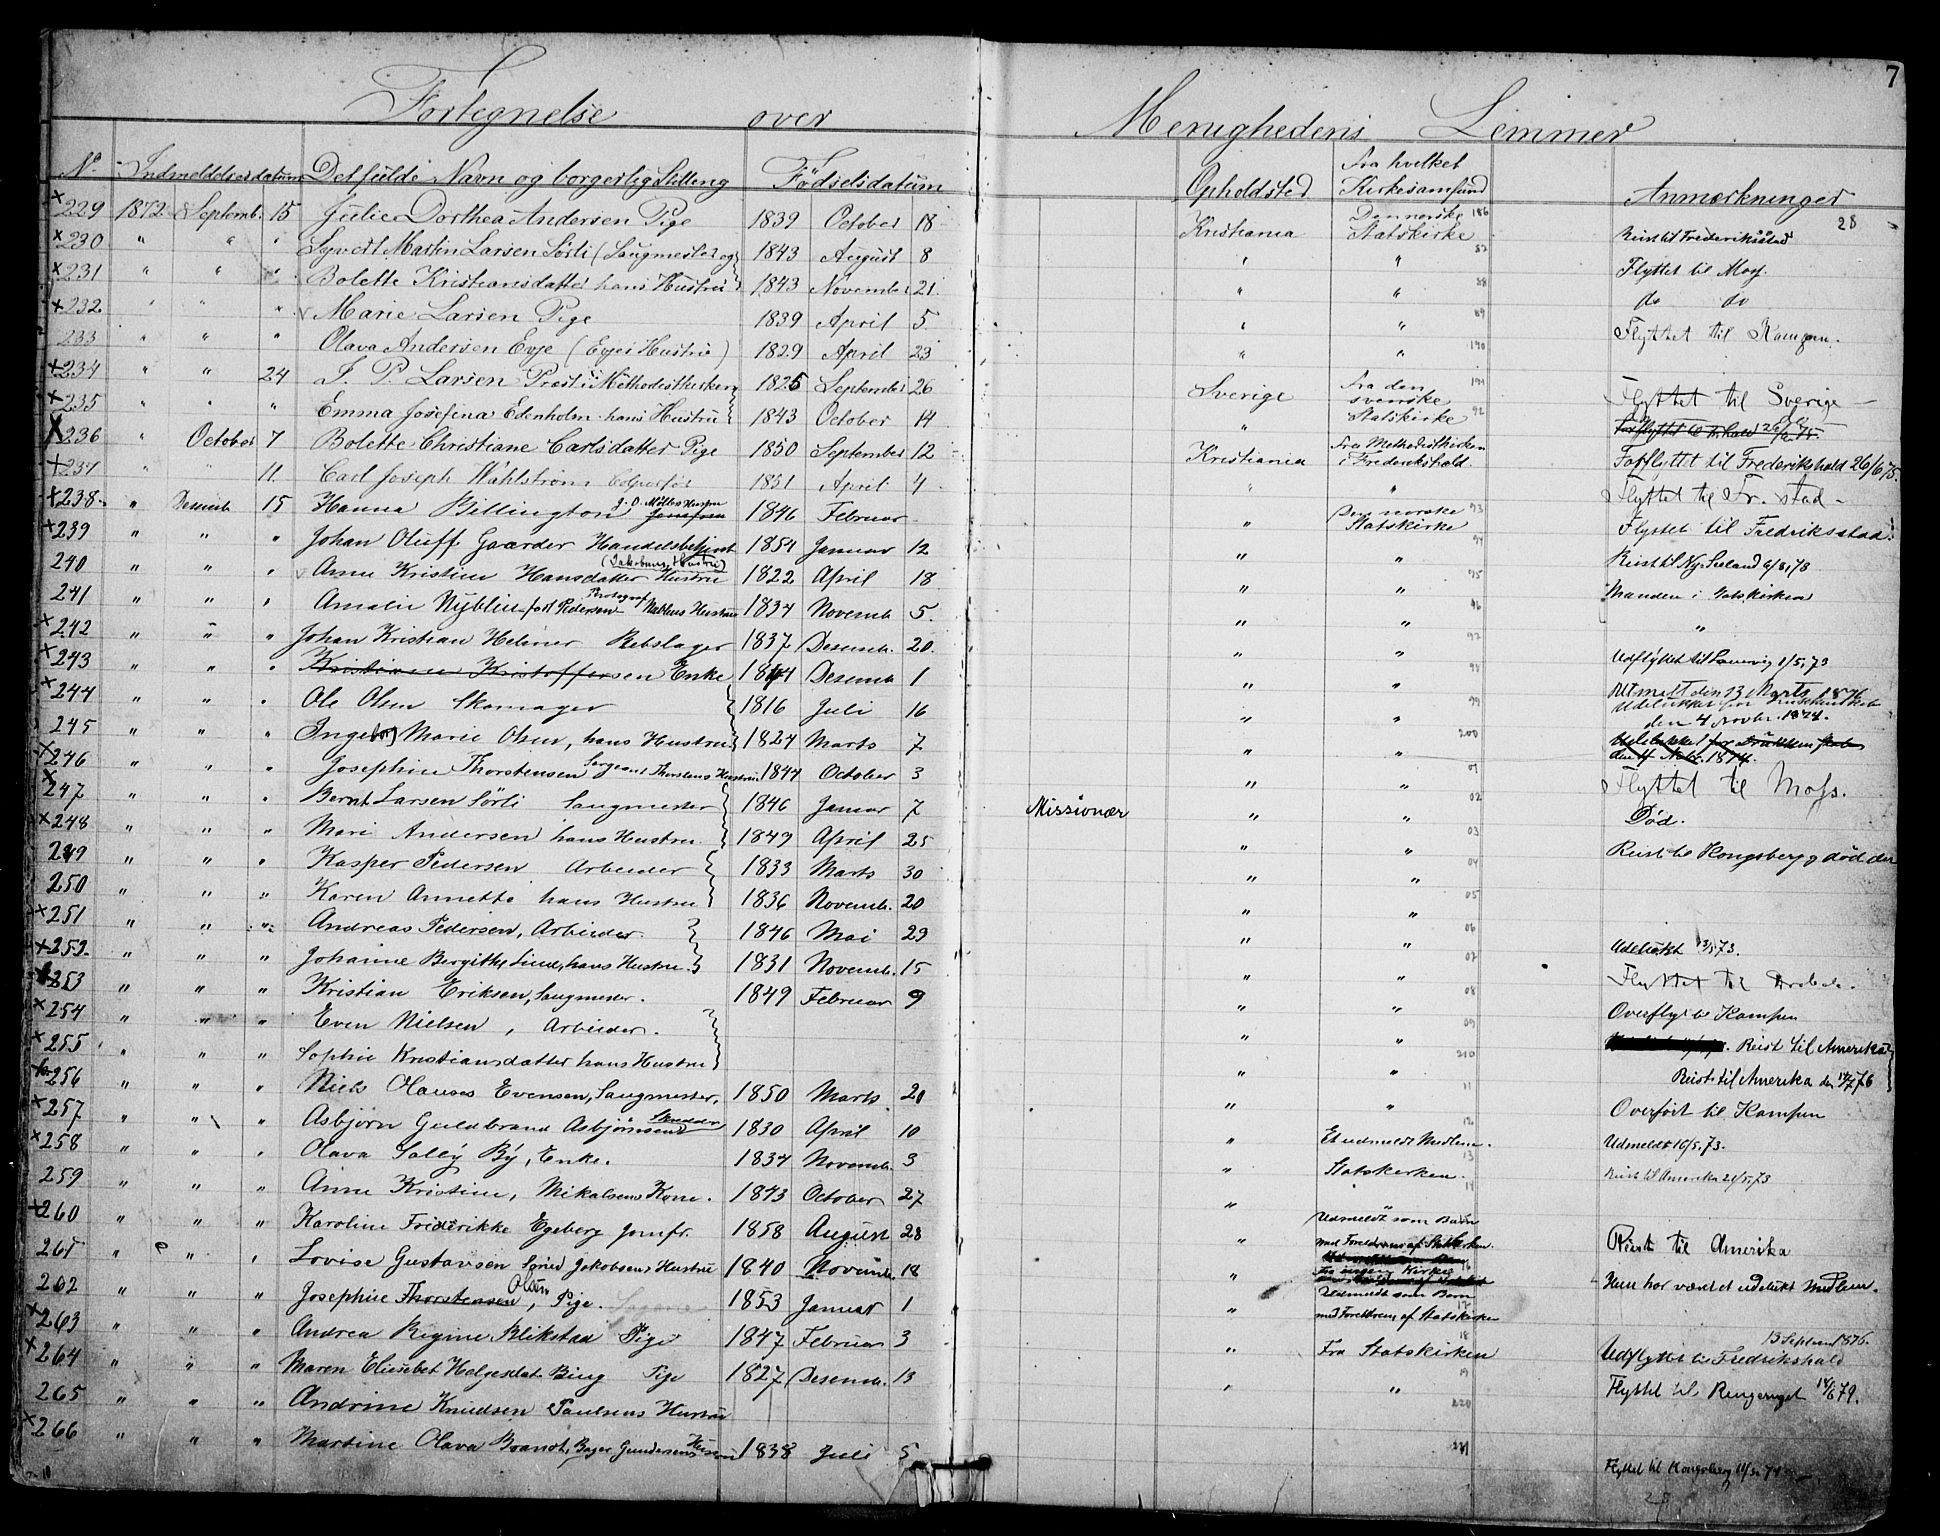 7
Fortegnelse over Menighedens Lemmer
No. Indmeldelsesdatum Det fulde Navn og borgerlig Stilling Fødselsdatum Opholdsted Fra hvilket Kirkesamfund Anmærkninger
x 229 1872 Septemb. 15 Julie Dorthea Andersen Pige 1839 October 18 Kristiania Den norske Statskirke 186 Reist til Frederiksstad 28
x 230 " " " Syvert Martin Larsen Sörli (Saugmester og 1843 August 8 " " 87 Flyttet til Moss.
x 231 " " " Bolette Kristiansdatter hans Hustru 1843 November 21 " " 88 do do
x 232 " " " Marie Larsen Pige 1839 April 5 " " 89 Flyttet til Kampen.
233 " " " Olava Andersen Evje (Evjes Hustru) 1829 April 23 " " 190
x 234 " " 24 J. P. Larsen Præst i Methodistkirken 1825 September 26 Sverige fra den svenske Statskirke 191 Flyttet til Sverige
x 235 " " " Emma Josefina Edenholm hans Hustru 1843 October 14 " 92
x 236 " October 7 Bolette Christiane Carlsdatter Pige 1850 September 12 Kristiania fra Methodistkirken i Frederikshald. Forflyttet til Frederikshald 26/6 75.
x 237 " " 11. Carl Joseph Wahlström Colportör 1831 April 4 " " Flyttet til Fr. stad
x 238 " Desemb 15 Hanna Billington J. O. Möllers Hustru 1846 Februar " Den norske Statskirke 93 Flyttet til Fredriksstad.
x 239 " " " Johan Oluff Gaarder Handelsbetjent 1854 Januar 12 " " 94 Reist til Ny Seeland 6/3, 78
240 " " " Anne Kristine Hansdatter (Jakobsens Hustru) Hustru 1822 April 18 " " 95 Manden i Statskirken
241 " " " Amalie Nyblin fød Pedersen Fotograf Nyblins Hustru 1834 Novemb. 5. " " 96 "
x 242 " " " Johan Kristian Helmer Rebslager 1837 Desemb. 20. " " 97 Udflyttet til Laurvig 1/5, 73
x 243 " " " Kristiane Kristoffersen Enke 1841 Desemb 1 " " 98 Utmelt den 13 Marts 1876
x 244 " " " Ole Olsen Skomager 1816 Juli 16 " " 99 Udelukket for den 4 Novbr. 1874.
245 " " " Ingeborg Marie Olsen, hans Hustru 1824 Marts 7 " " 200 Udelukket for den 4 Novbr. 1874.
x 246 " " " Josephine Thorstensen Sergeant Thorstens Hustru 1844 October 3 " " 01 Flyttet til Moss.
x 247 " " " Bernt Larsen Sörli Saugmester 1846 Januar 7 Missionær " " 02 Død.
x 248 " " " Mari Andersen hans Hustru 1849 April 25 " " 03 Reist til Kongsberg og død der
249 " " " Kasper Pedersen Arbeider 1833 Marts 30 " " 04
250 " " " Karen Annette hans Hustru 1836 Novemb. 20 " " 05
x 251 " " " Andreas Pedersen, Arbeider. 1846 Mai 29 " " 06 Udelukt 13/5 73.
x 252 " " " Johanne Bergitte Lund, hans Hustru. 1831 Novemb. 15 " " 07 Flyttet til
x 253 " " " Kristian Eriksen, Saugmester. 1849 Februar 9 " " 08 Overflyt til Kampen
x 254 " " " Even Nielsen, Arbeider. " " 09 Reist til Amerika
x 255 " " " Sophie Kristiansdatter hans Hustru " " 210 Reist til Amerika den 14/7 76
x 256 " " " Niels Olauses Evensen, Saugmester, 1850 Marts 20 " " 11 Overført til Kampen
x 257 " " " Asbjørn Guldbrand Asbjørnsen Skrædder 1830 April 10 " Et udmeldt Medlem. 12 Udmeldt 10/5. 73.
x 258 " " " Olava Sally By, Enke. 1834 Novemb. 3 " Statskirken. 13 Reist til Amerika 21/5. 73
259 " " " Anne Kristine, Mikalsens Kone. 1843 October 27 " " 14
x 260 " " " Karoline Friderikke Egeberg Jomfr. 1858 August 28 " Udmeldt som Barn med Foreldrene af Statskirken. Reist til Amerika
261 " " " Lovise Gustavsen Smed Jakobsens Hustru 1840 Novemb. 18 " Fra ingen Kirke 16 Hun har været et udelukt Medlem.
262 " " " Josephine Thorstensen Olsen, Pige. 1853 Januar 1 " Udmeldt som Barn med Foreldrene af Statskirken 17
x 263 " " " Andrea Regine Blikstad Pige 1847 Februar 3 " Fra Statskirken 18 Udflyttet til Fredrikshald 13 Septem 1876.
x 264 " " " Maren Elisabet Helgesdat. Bing Pige 1827 Desemb. 13 " " 19 Flyttet til Ringeriget 14/6 79.
265 " " " Andrine Knudsen Paulsens Hustru 220
x 266 " " " Martine Olava Brandt, Bager Gundersens Hustru 1838 Juli 5 221 Flyttet til Kongsberg 11/3. 74